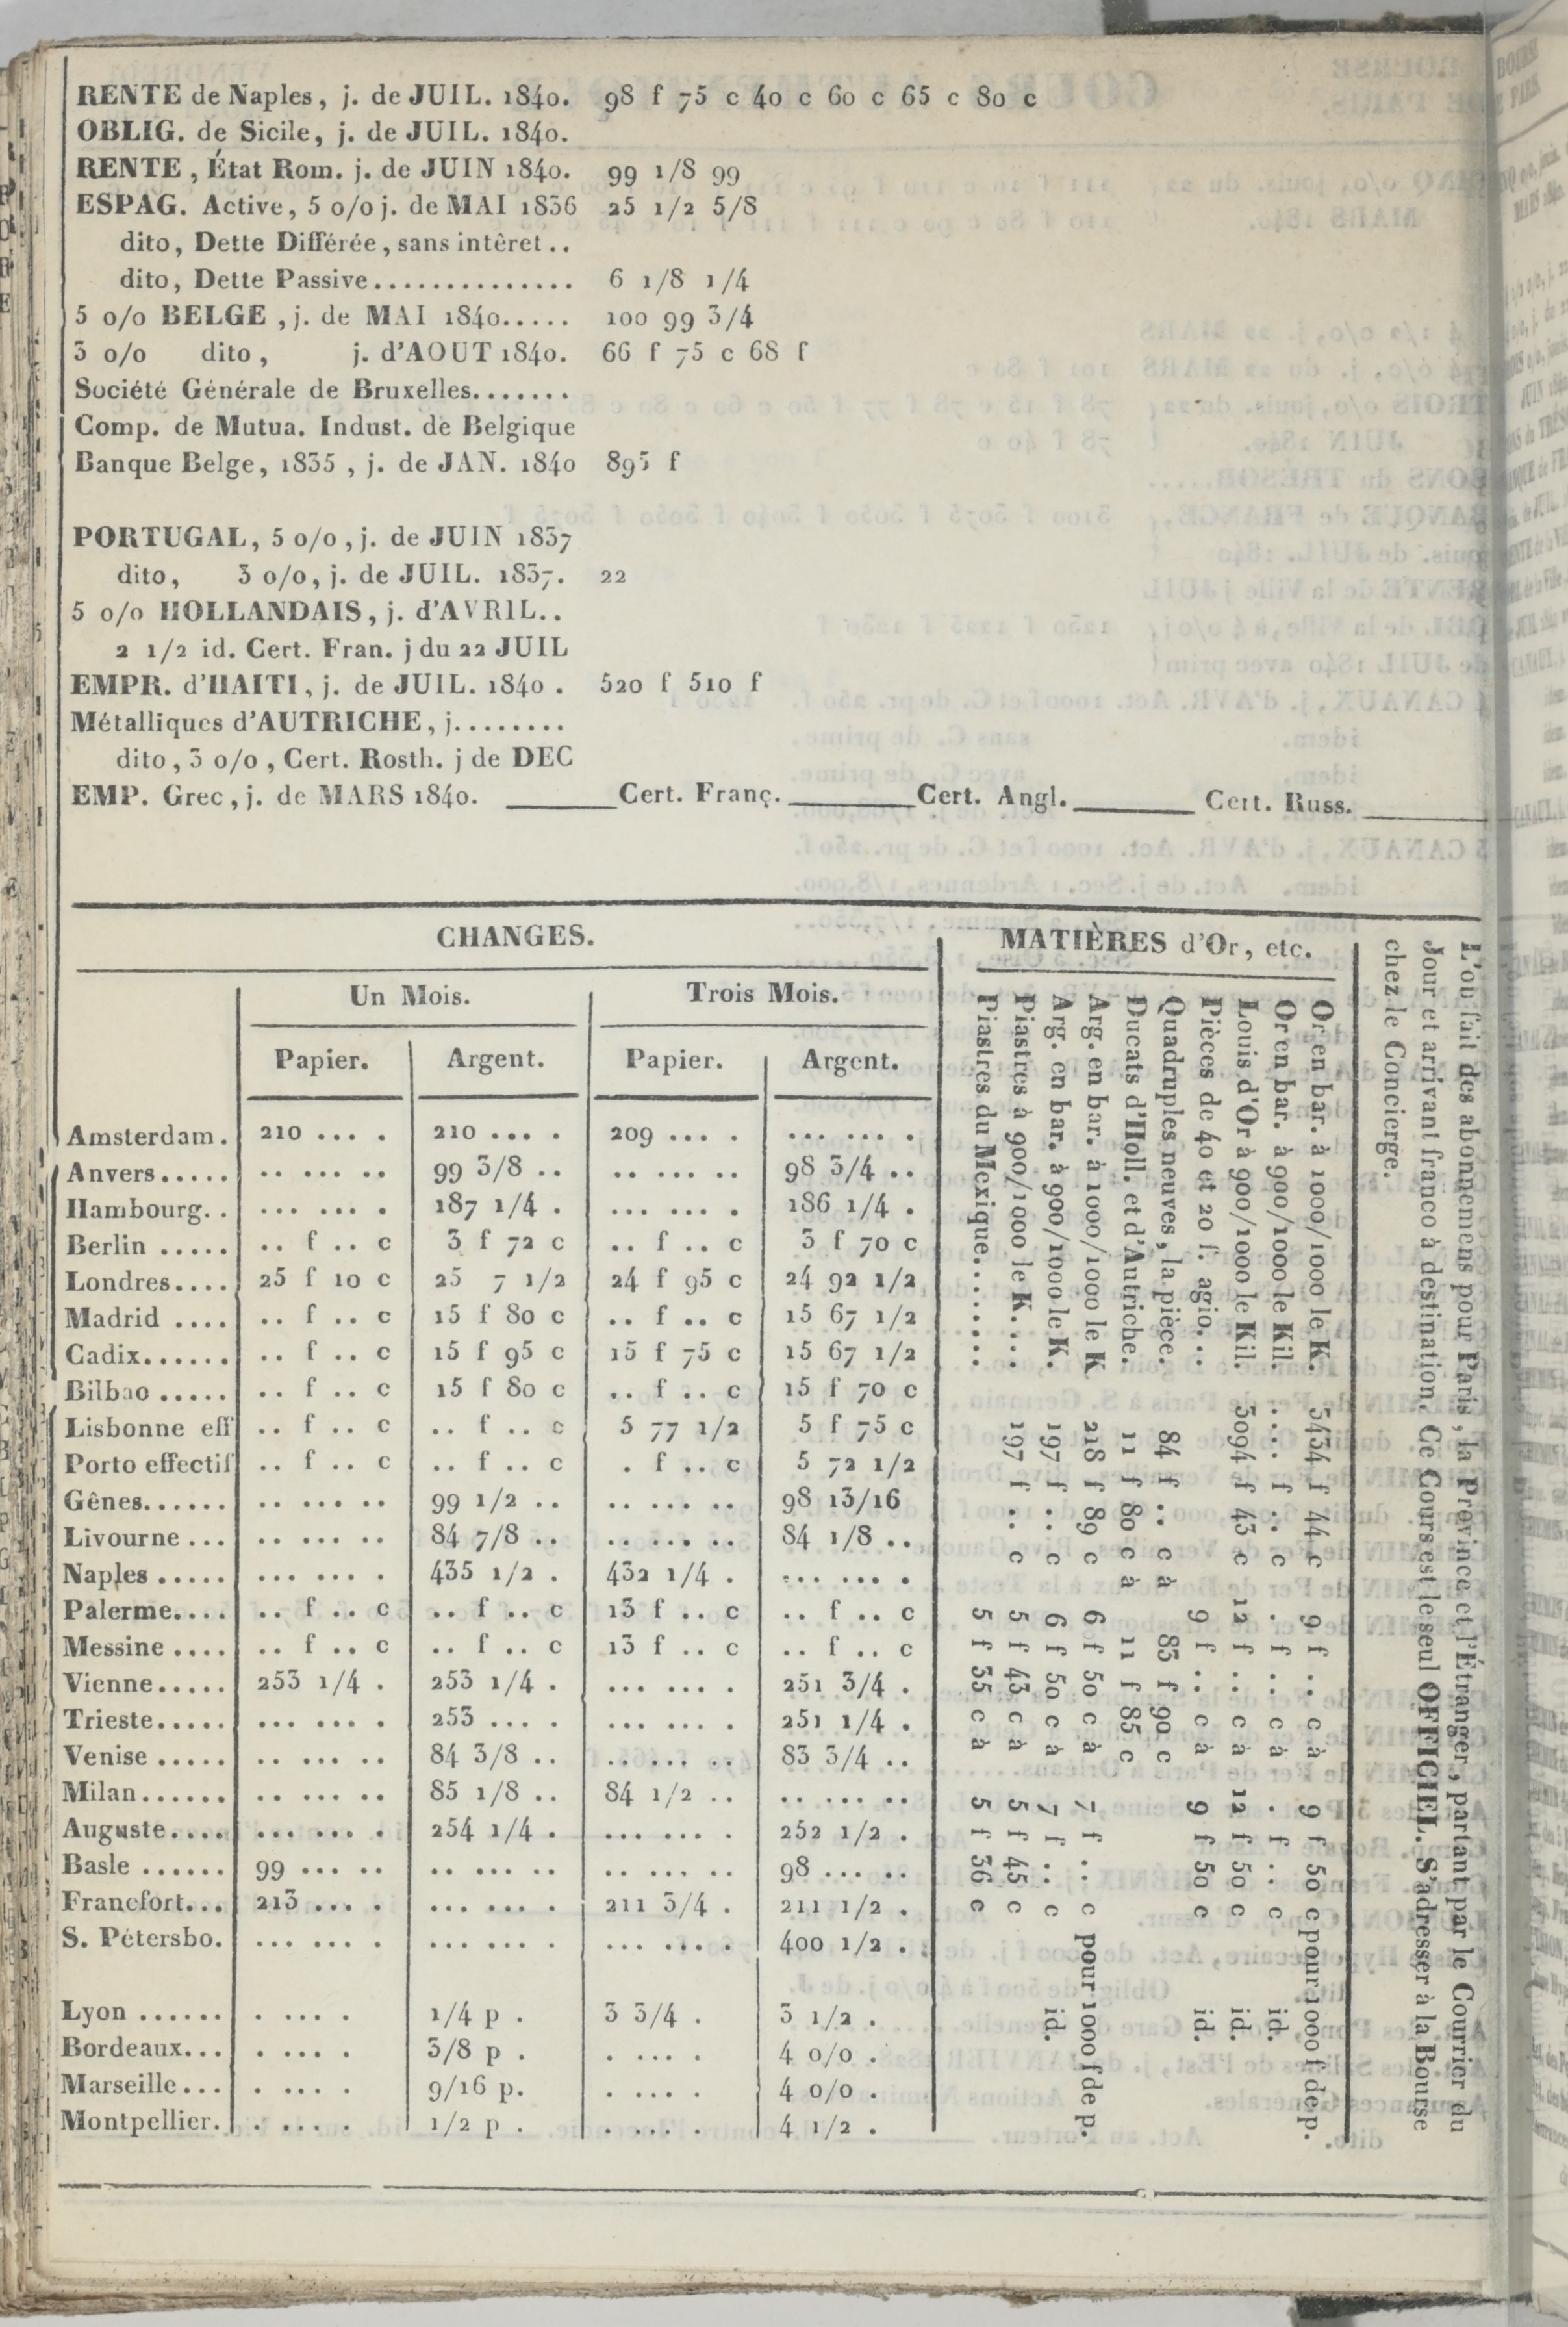 RENTE de Naples, j. de JUIL. 1840. 98 f 75 c 40 c 60 c 65 c 80 c
OBLIG. de Sicile, j. de JUIL. 1840.
RENTE, État Rom. j. de JUIN 1840. 99 1/8 99
ESPAG. Active, 5 o/o j. de MAI 1836 25 1/2 5/8
dito, Dette Différée, sans intêret..
dito, Dette Passive.............. 6 1/8 1/4
5 o/o BELGE, j. de MAI 1840..... 100 99 3/4
3 o/o dito, j. d'AOUT 1840. 66 f 75 c 68 f
Société Générale de Bruxelles.......
Comp. de Mutua. Indust. de Belgique
Banque Belge, 1835, j. de JAN. 1840 895 f
PORTUGAL, 5 o/o, j. de JUIN 1837
dito, 3 o/o, j. de JUIL. 1837. 22
5 o/o HOLLANDAIS, j. d'AVRIL..
2 1/2 id. Cert. Fran. j du 22 JUIL
EMPR. d'HAITI, j. de JUIL. 1840. 520 f 510 f
Métalliques d'AUTRICHE, j........
dito, 3 o/o, Cert. Rosth. j de DEC
EMP. Grec, j. de MARS 1840. ______ Cert. Franç. ______ Cert. Angl. ______ Cert. Russ. ______
CHANGES.
Un Mois. Trois Mois.
Papier. Argent. Papier. Argent.
Amsterdam. 210 ... . 210 ... . 209 ... . ... ... .
Anvers..... .. ... .. 99 3/8 .. .. ... .. 98 3/4 ..
Hambourg. . ... ... . 187 1/4 . ... ... . 186 1/4 .
Berlin ..... .. f .. c 3 f 72 c .. f .. c 3 f 70 c
Londres.... 25 f 10 c 25 7 1/2 24 f 95 c 24 92 1/2
Madrid .... .. f .. c 15 f 80 c .. f .. c 15 67 1/2
Cadix...... .. f .. c 15 f 95 c 15 f 75 c 15 67 1/2
Bilbao ..... .. f .. c 15 f 80 c .. f .. c 15 f 70 c
Lisbonne eff .. f .. c .. f .. c 5 77 1/2 5 f 75 c
Porto effectif .. f .. c .. f .. c . f .. c 5 72 1/2
Gênes...... .. ... .. 99 1/2 .. .. ... .. 98 13/16
Livourne ... .. ... .. 84 7/8 .. .. ... .. 84 1/8 ..
Naples ..... ... ... . 435 1/2 . 432 1/4 . ... ... .
Palerme.... .. f .. c .. f .. c 13 f .. c .. f .. c
Messine .... .. f .. c .. f .. c 13 f .. c .. f .. c
Vienne..... 253 1/4 . 253 1/4 . ... ... . 251 3/4 .
Trieste..... ... ... . 253 ... . ... ... . 251 1/4 .
Venise ..... .. ... .. 84 3/8 .. .. ... .. 83 3/4 ..
Milan...... .. ... .. 85 1/8 .. 84 1/2 .. .. ... ..
Auguste.... ... ... . 254 1/4 . ... ... . 252 1/2 .
Basle ...... 99 ... .. .. ... .. .. ... .. 98 ... ..
Francfort... 213 ... . ... ... . 211 3/4 . 211 1/2 .
S. Pétersbo. ... ... . ... ... . ... ... . 400 1/2 .
Lyon ...... . ... . 1/4 p . 3 3/4 . 3 1/2 .
Bordeaux... . ... . 3/8 p . . ... . 4 o/o .
Marseille... . ... . 9/16 p. . ... . 4 o/o .
Montpellier. . ... . 1/2 p . . ... . 4 1/2 .
MATIÈRES d'Or, etc.
Or en bar. à 1000/1000 le K. 3434 f 44 c 9 f .. c à 9 f 50 c pour 1000 f de p.
Or en bar. à 900/1000 le Kil. .... f .. c . f .. c à . f .. c id.
Louis d'Or à 900/1000 le Kil. 3094 f 43 c 12 f .. c à 12 f 50 c id.
Pièces de 40 et 20 f. agio... 9 f .. c à 9 f 50 c id.
Quadruples neuves, la pièce. 84 f .. c à 83 f 90 c
Ducats d'Holl. et d'Autriche. 11 f 80 c à 11 f 85 c
Arg. en bar. à 1000/1000 le K 218 f 89 c 6 f 50 c à 7 f .. c pour 1000 f de p.
Arg. en bar. à 900/1000 le K. 197 f .. c 6 f 50 c à 7 f .. c id.
Piastres à 900/1000 le K.... 197 f .. c 5 f 43 c à 5 f 45 c
Piastres du Mexique........ 5 f 35 c à 5 f 36 c
L'on fait des abonnemens pour Paris, la Province et l'Étranger, partant par le Courrier du
Jour et arrivant franco à destination. Ce Cours est le seul OFFICIEL. S'adresser à la Bourse
chez le Concierge.